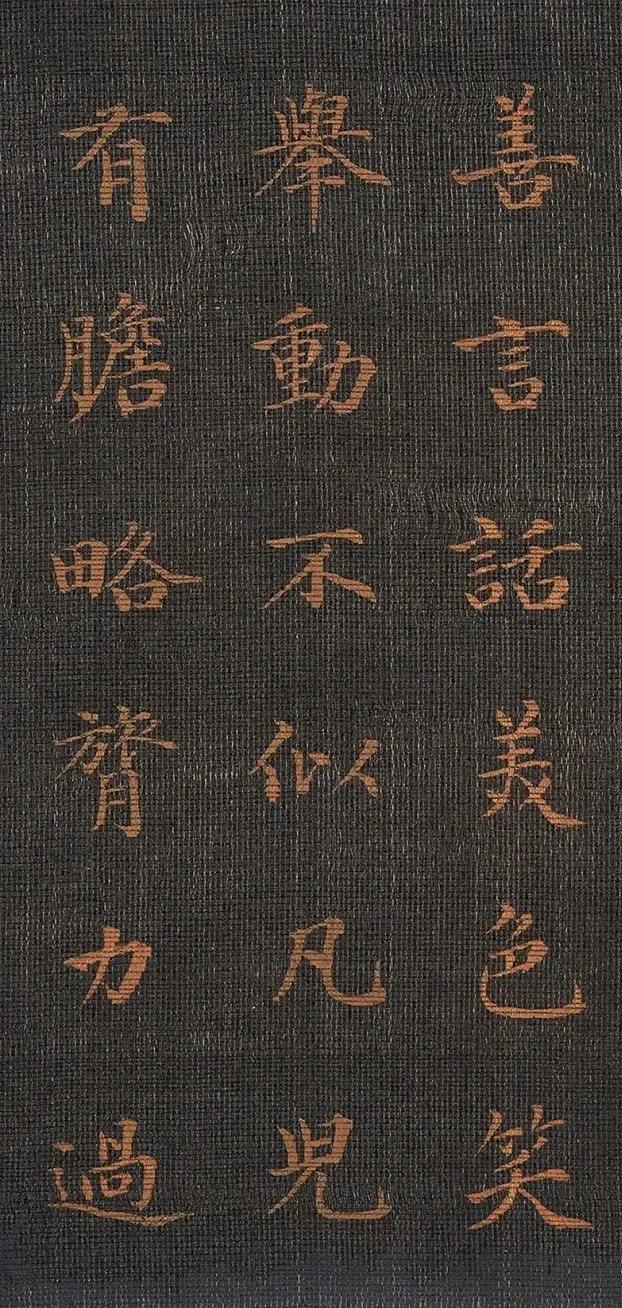 善言話美色笑
舉動不似凡兒
有膽略膂力過